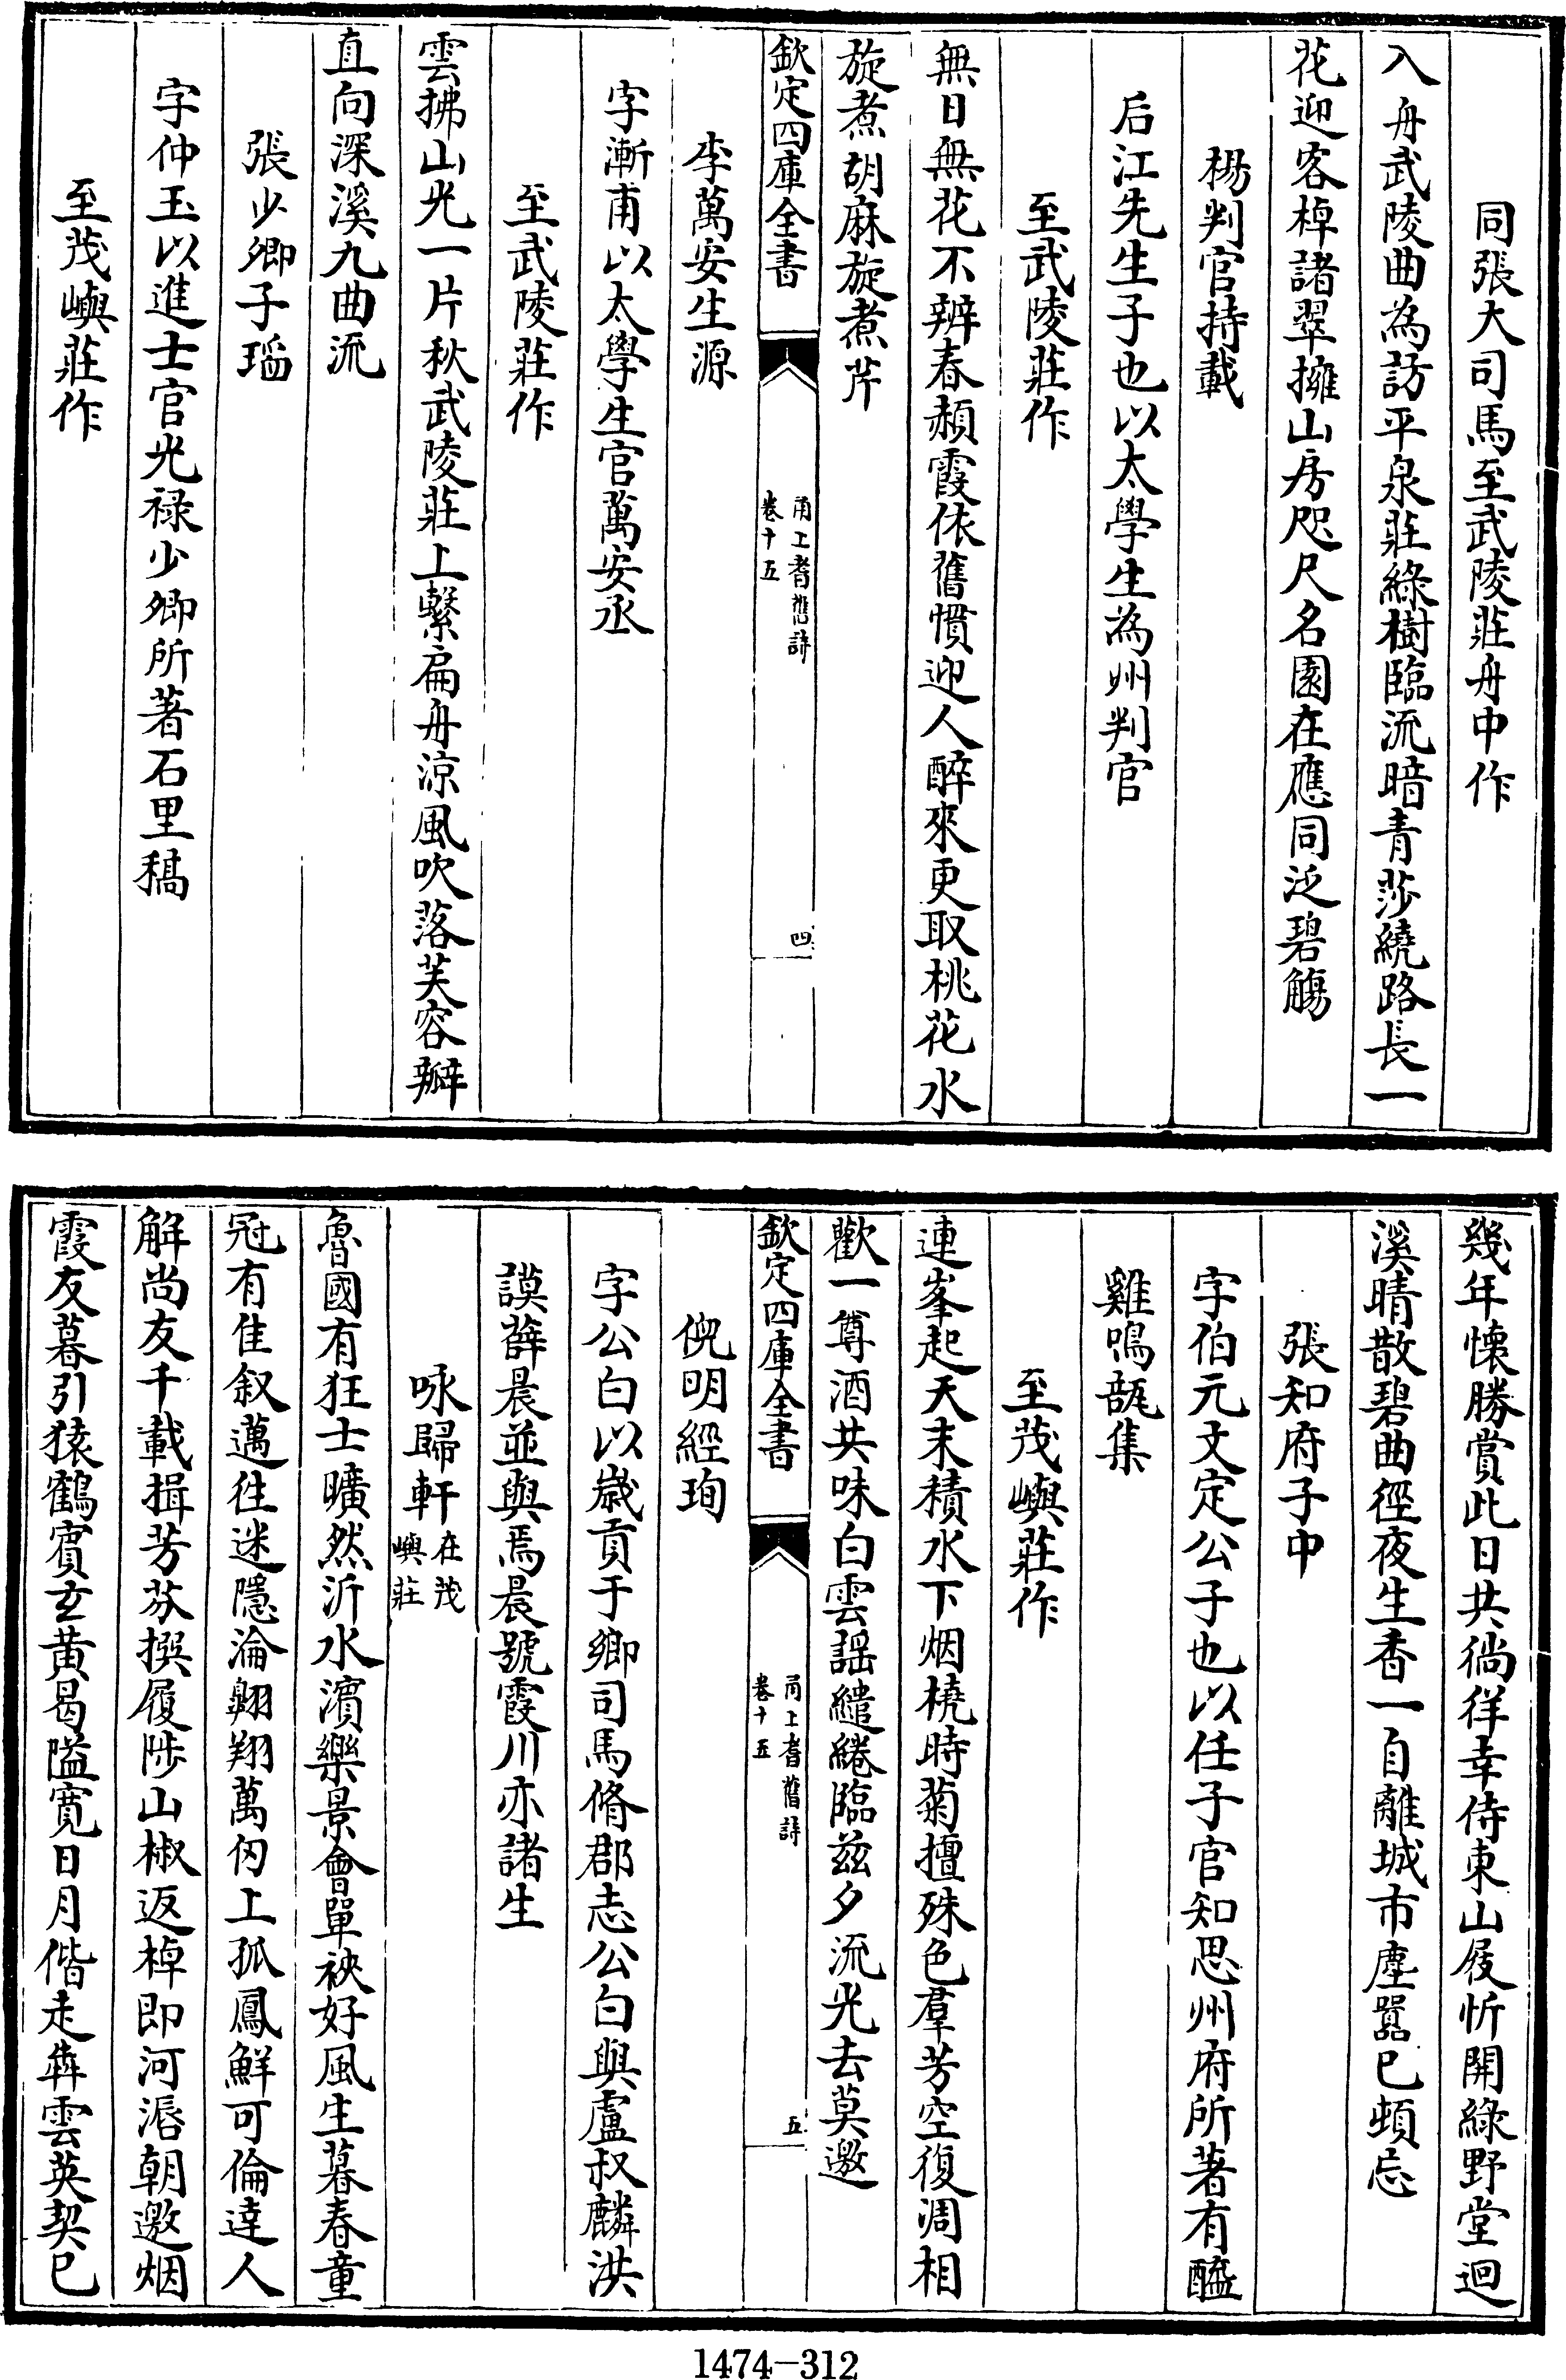 同張大司馬至武陵莊舟中作
入舟武陵曲為訪平泉莊綠樹臨流暗青莎繞路長一
花迎客棹諸翠擁山房咫尺名園在應同泛碧觴
楊判官持載
后江先生子也以太學生為州判官
至武陵莊作
無日無花不辨春頳霞依舊慣迎人醉來更取桃花水
旋煮胡麻旋煮芹
欽定四庫全書
甬上耆舊詩
卷十五
四
李萬安生源
字漸甫以太學生官萬安丞
至武陵莊作
雲拂山光一片秋武陵莊上繫扁舟涼風吹落芙容瓣
直向深溪九曲流
張少卿子瑫
字仲玉以進士官光祿少卿所著石里稿
至茂嶼莊作
幾年懷勝賞此日共徜徉幸侍東山屐忻開綠野堂迴
溪晴散碧曲徑夜生香一自離城市塵囂已頓忘
張知府子中
字伯元文定公子也以任子官知思州府所著有醯
雞鳴瓿集
至茂嶼莊作
連峯起天末積水下烟橈時菊擅殊色羣芳空復凋相
歡一尊酒共味白雲謠繾綣臨茲夕流光去莫邀
欽定四庫全書
甬上耆舊詩
卷十五
五
倪明經珣
字公白以歲貢于鄉司馬脩郡志公白與盧叔麟洪
謨薛晨並與焉晨號霞川亦諸生
咏歸軒在茂嶼莊
魯國有狂士曠然沂水濱樂景會單袂好風生暮春童
冠有佳叙邁徃迷隱淪翺翔萬仞上孤鳳鮮可倫達人
解尚友千載揖芳芬撰履陟山椒返棹即河漘朝邀烟
霞友暮引猿鶴賓玄黃曷隘寬日月偕走犇雲英契已
1474-312